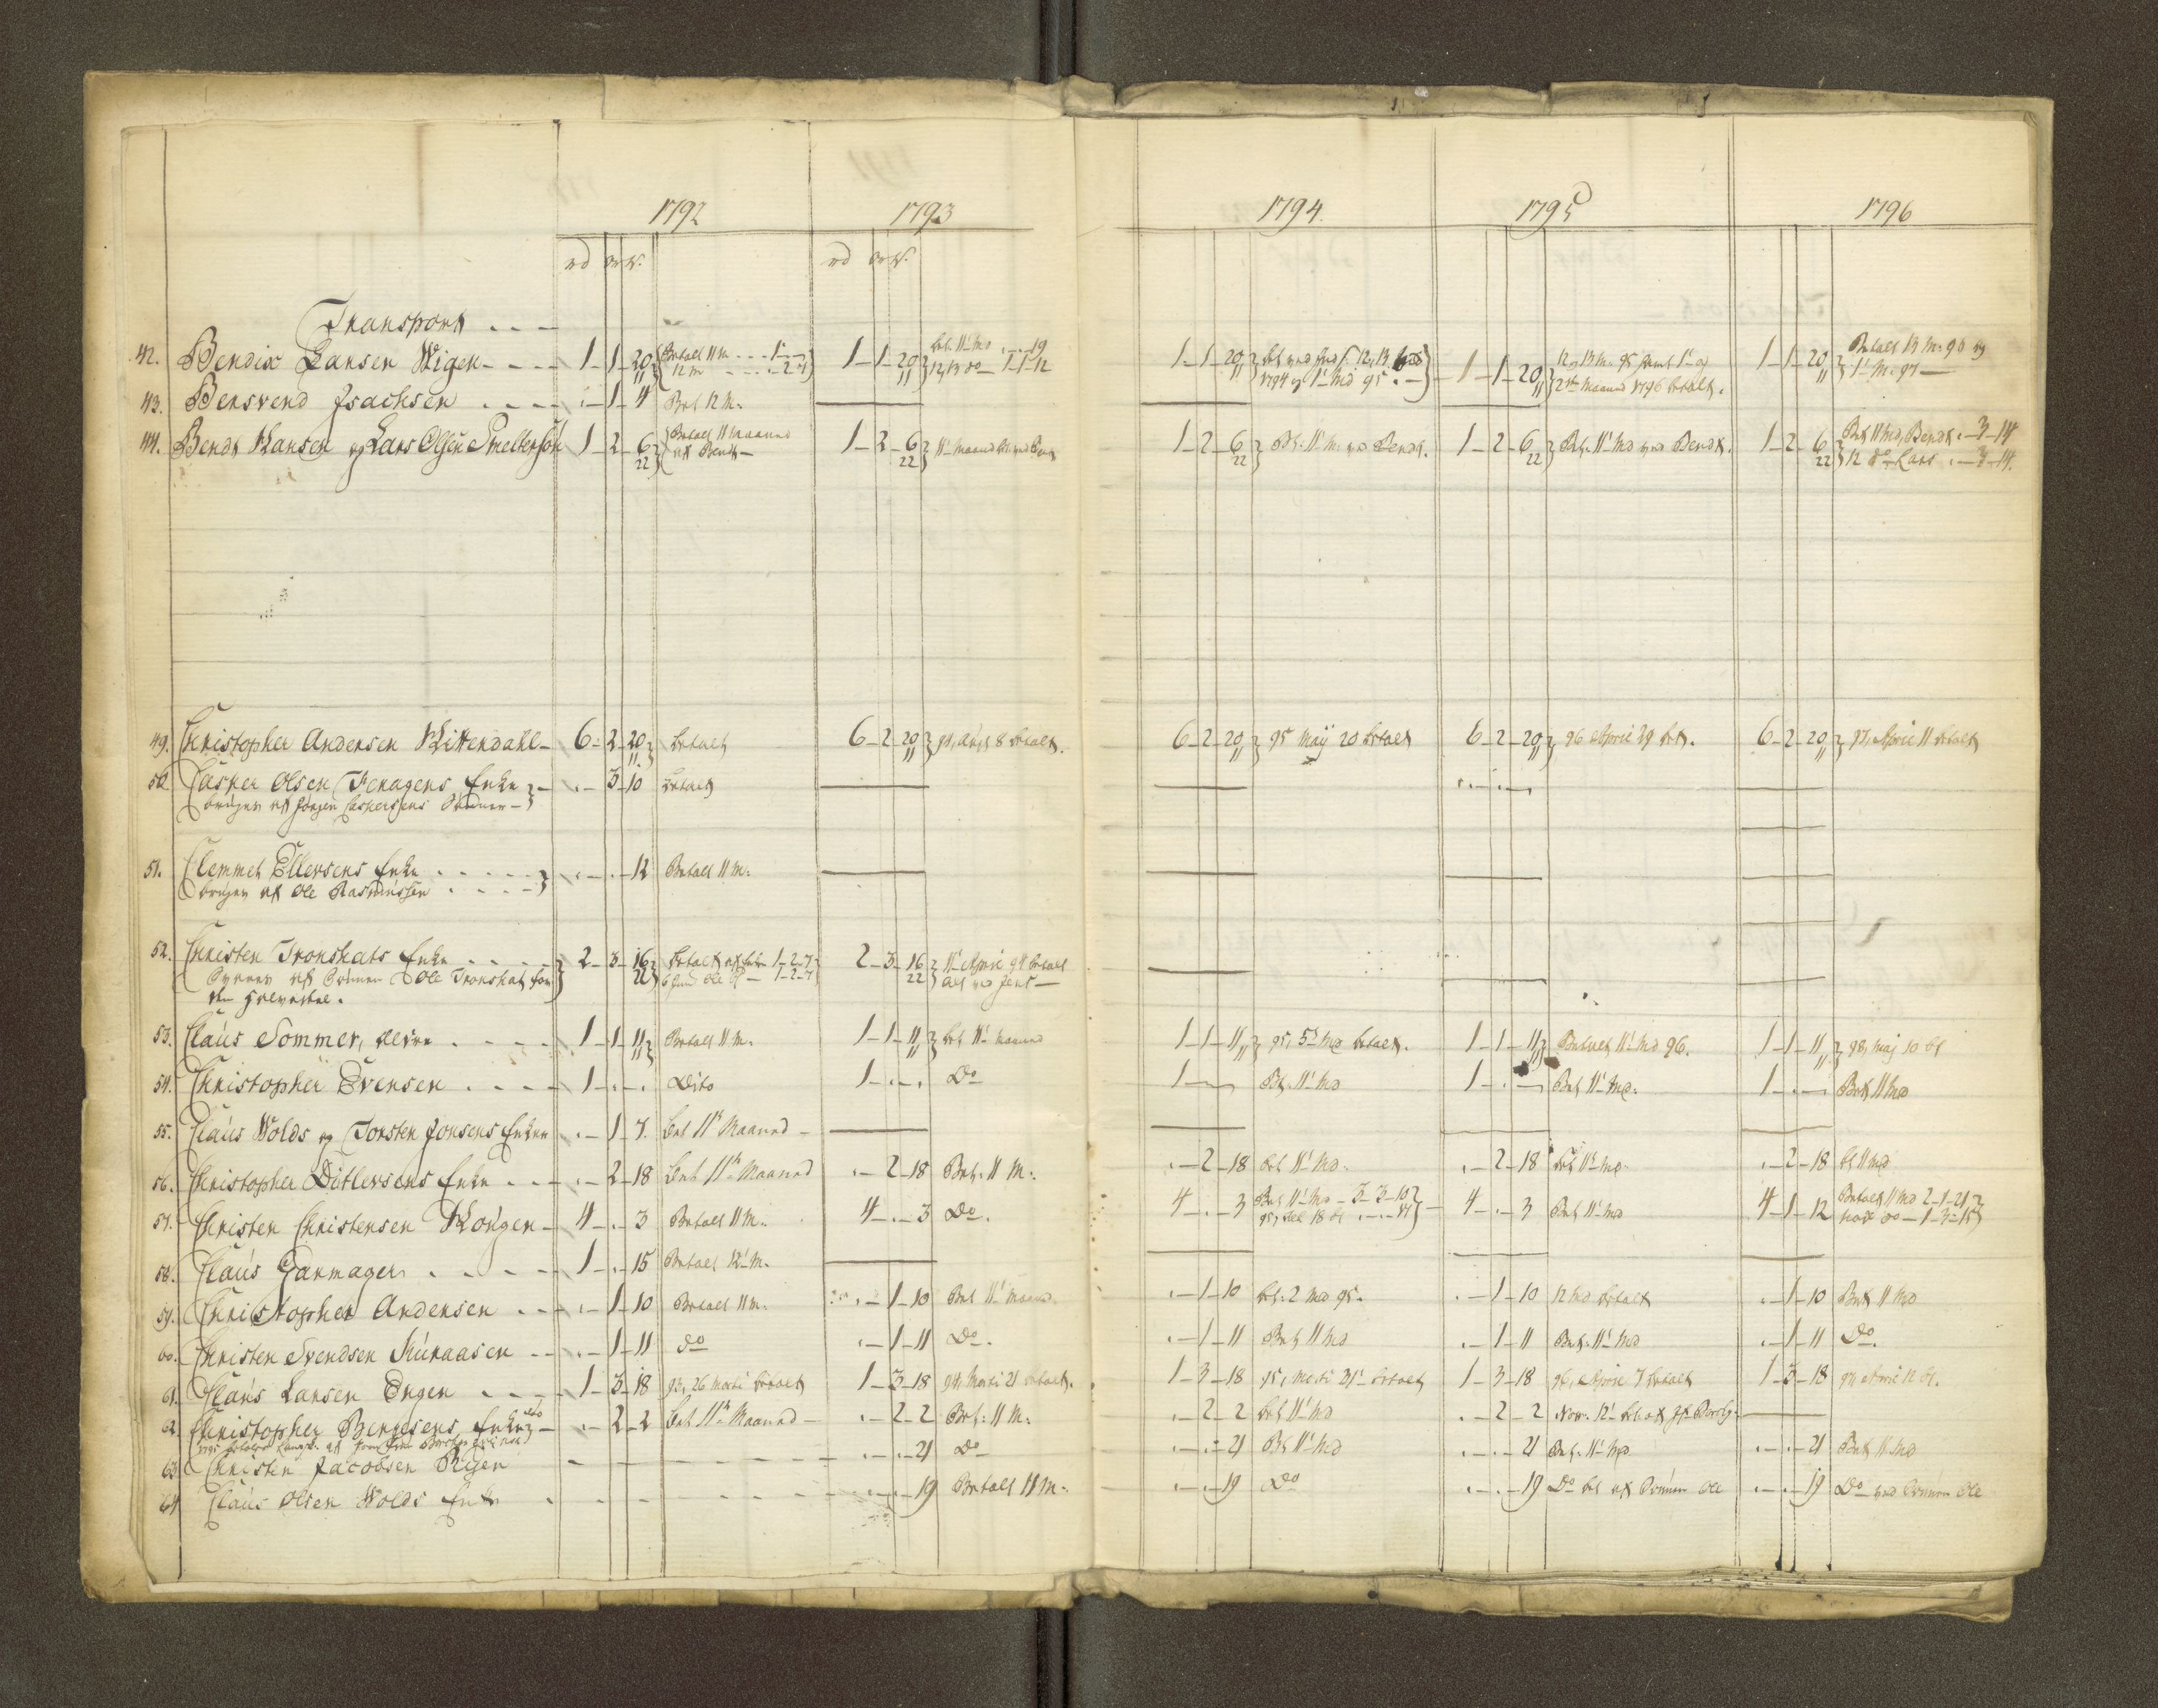 1792 1793 1794. 1795 1796
rd ort s. rd ort s.
Transport . . –
42. Bendix Larsen Wigen - - - - 1 - 1 - 20 11 Betalt 11 m - - - 1 - - 1 - 1 - 20 11 bet. 11' md . - . - 19 1 - 1 - 20 11 1 - 1 - 20 11 12, 13 m. 95 samt 1' og 1 - 1 - 20 11 Betalt 13 m. 96 og
12 m - - . - 2 - 7 12, 13 do - 1 - 1 - 12 1794 og 1' md 95 . - 2den maaned 1796 betalt. 1' m. 97 -
43. Bensvend Isachsen . . . - . - 1 - 4 Bet 12 m.
44. Bendt Hansen og Lars Olsen Smeltersøn 1 - 2 - 6 22 Betalt 11 maaned 1 - 2 - 6 22 11' maaned 1 - 2 - 6 22 Bt. 11' m. ved Bendt. 1 - 2 - 6 22 Bet. 11' md ved Bendt. 1 - 2 - 6 22 Bet 11 md, Bendt . - 3 - 14
af Bendt - 12 do Lars . - 3 - 14.
49. Christopher Andersen Kittendahl - 6 - 2 - 20 11 betalt 6 - 2 - 20 11 94, Augt 8 betalt. 6 - 2 - 20 11 95 Maÿ 20 betalt 6 - 2 - 20 11 96 April 29 bet. 6 - 2 - 20 11 97, April 11 betalt
50. Casper Olsen Fenagens Enke - . - 3 - 10 betalt
bruges af Jørgen Caspersens
51. Clemmet Ellevsens Enke . . . . . - . - 12 Betalt 11 m.
bruges af Ole Rasmussen . . . -
52. Christen Tronshats Enke . . . . 2 - 3 - 16 22 betalt af Enk 1 - 2 - 7 2 - 3 - 16 22 11' April 94 betalt
af Sønnen Ole Tronshat for Ole 1 - 2 - 7 alt ved Jens -
den halvedeel.
53. Claús Sommer, . . . . 1 - 1 - 11 11 Betalt 11 m. 1 - 1 - 11 11 bet 11' maaned 1 - 1 - 11 11 95, 5te md betalt. 1 - 1 - 11 11 Betalt 11' md 96. 1 - 1 - 11 11 98, maj 10 bt
54. Christopher Evensen . . . - 1 - . - . Dito 1 - . - . Do 1 - - Bt. 11' md 1 - . - Bet 11' md. 1 - . - Bet 11 md
55. Claús Wolds og Torsten Jonsens Enker . - 1 - 7. bet 11te Maaned -
56. Christopher Ditlevsens Enke . . - . - 2 - 18 bet 11te Maaned . - 2 - 18 Bet. 11 m. . - 2 - 18 bet 11' md. . - 2 - 18 bet 11' md. . - 2 - 18 bt 11 md
57. Christen Christensen Kongen - 4 - . - 3 Betalt 11 m. 4 - . - 3 Do. 4 - . - 3 Bet 11' md - 3 - 3 - 10 4 - . - 3 Bet 11' md 4 - 1 - 12 Betalt 11 md 2 - 1 - 21
95, 18 bt . - . - 17 do - 1 - 3 - 15
58. Claús Garmager . . . - - 1 - . - 15 Betalt 12' m.
59. Christopher Andersen . . - . - 1 - 10 Betalt 11 m. . - 1 - 10 Bet 11' maaned. . - 1 - 10 bet. 2 md 95. . - 1 - 10 12 md betalt . - 1 - 10 Bet 11 md
60. Christen Svendsen Kúnaasen - - . - 1 - 11 do . - 1 - 11 Do. . - 1 - 11 Bet 11 md . - 1 - 11 Bet. 11' md . - 1 - 11 Do.
61. Claús Larsen Engen . . . - 1 - 3 - 18 93, 26 Marti betalt 1 - 3 - 18 94, Marti 21 betalt. 1 - 3 - 18 95, Marti 31' betalt 1 - 3 - 18 96, April 7 betalt 1 - 3 - 18 97 April 12 bt.
62. Christopher Bengesens Enke - . - 2 - 2 bet 11te Maaned - . - 2 - 2 Bet: 11 m. . - 2 - 2 bet 11' md . - 2 - 2 Nov. 12' bet. af
63. Christen Jacobsen Rigen . - . - 21 Do . - . - 21 Bt 11' md . - . - 21 Bet. 11' md. . - . - 21 Bet 11 md
64 Claús Olsen Wolds Enke . - . - 19 Betalt 11 m. . - . - 19 Do . - . - 19 Do bet af Sønnen Ole . - . - 19 Do ved Sønnen Ole